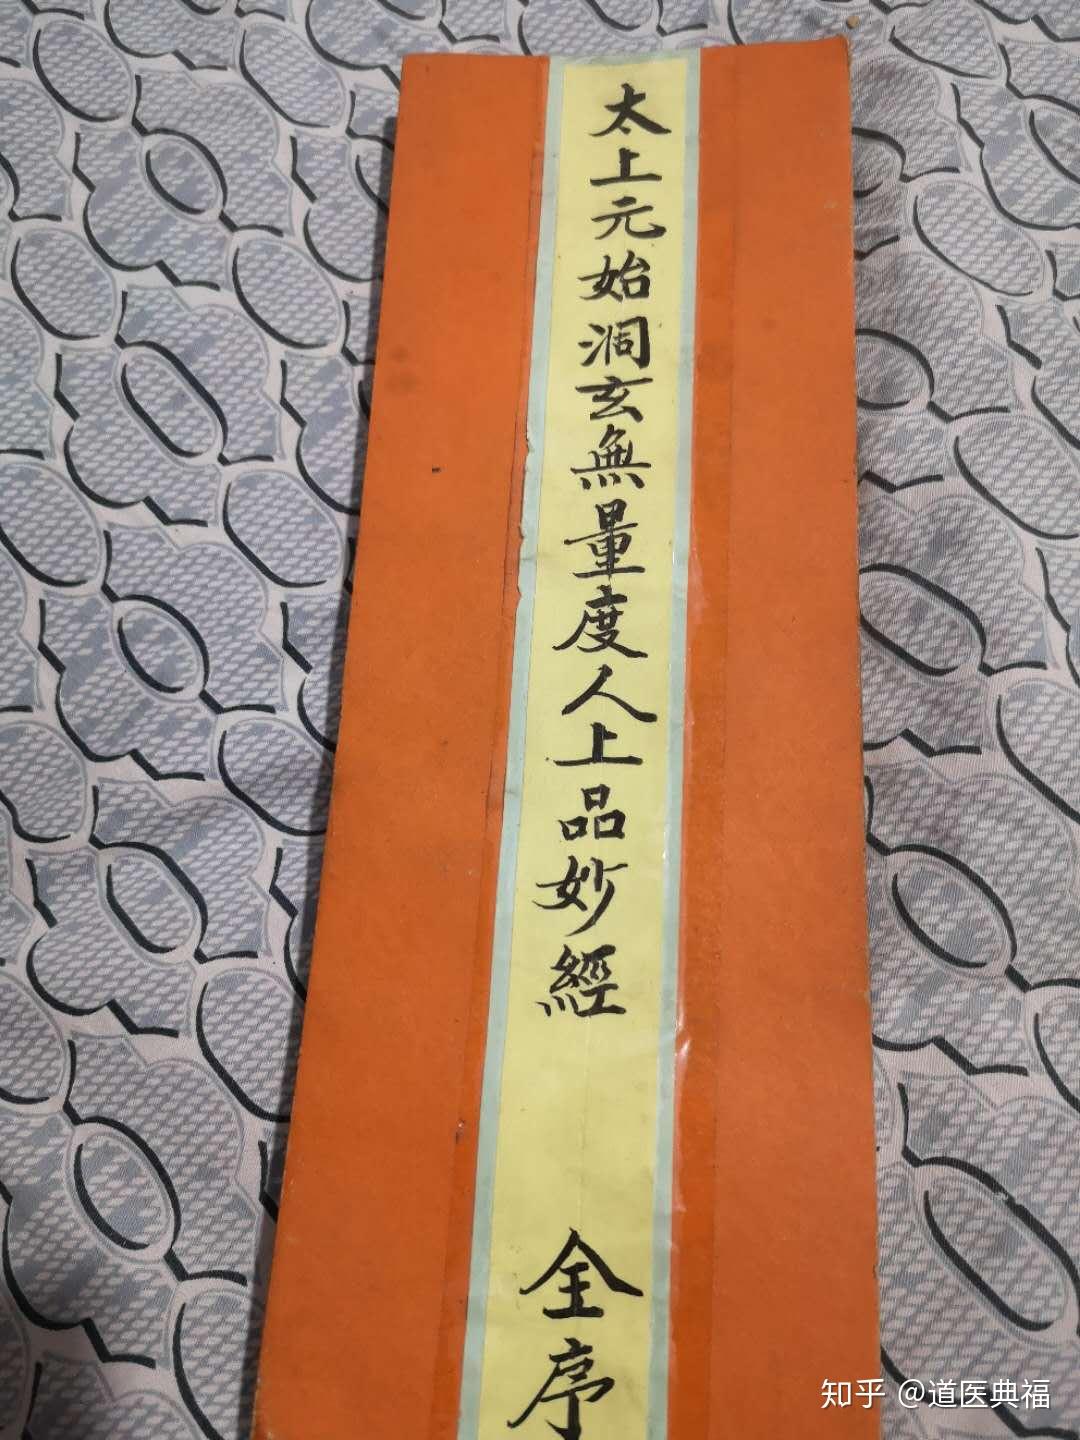 太上元始洞玄無量度人上品妙經
全序
知乎 @道医典福